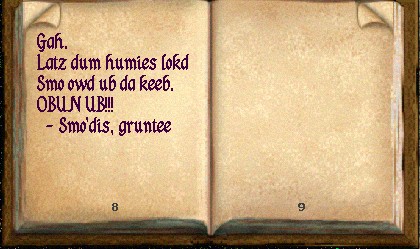 Gah.
Latz dum humies lokd
Smo owd ub da keeb.
OBUN UB!!!
- Smo'dis, gruntee
8
9